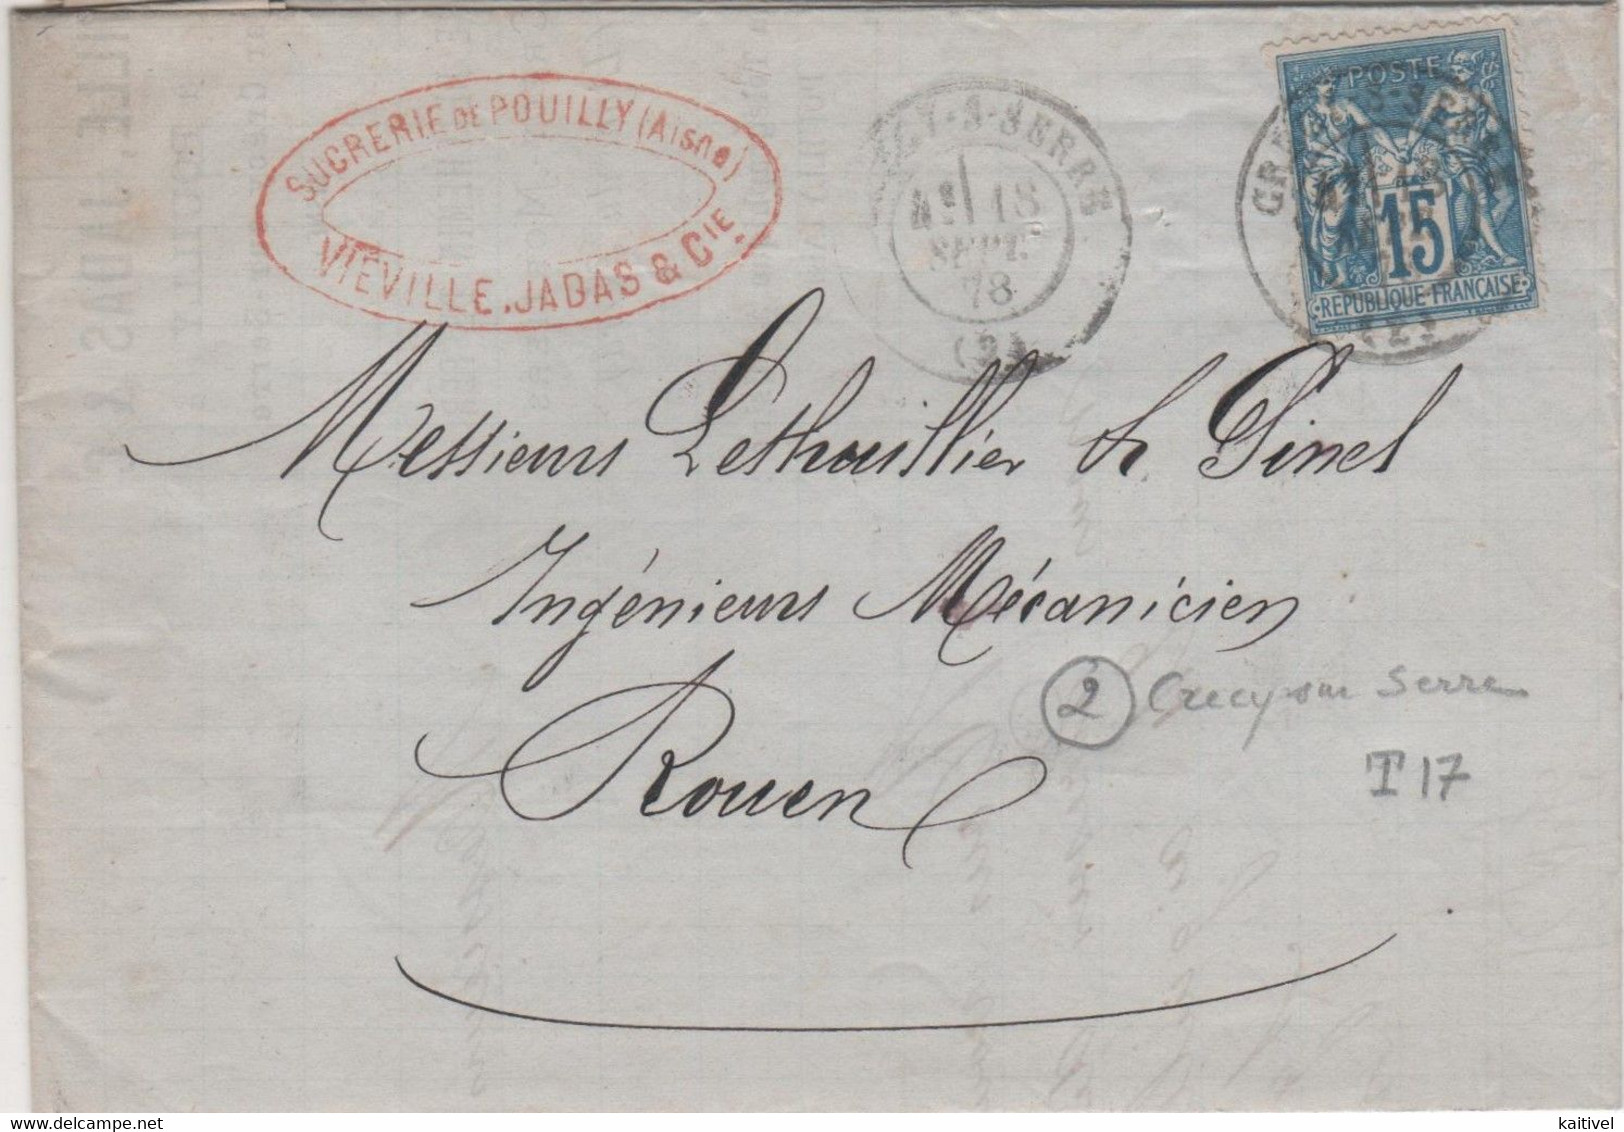 SUCRERIE DE POUILLY (Aisne)
VIÉVILLE, JADAS & CIE
CY-S-SERRE
4E 18
SEPT.
78
(2)
POSTE
15
RÉPUBLIQUE FRANÇAISE
S-SER
(2)
Messieurs Lethuillier & Pinel
Ingénieurs Mécanicien
Rouen
2 Crecy sur Serre
T 17
kaitivel